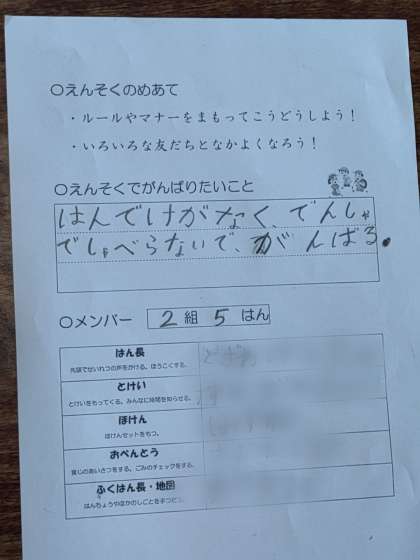 ○えんそくのめあて
・ルールやマナーをまもってこうどうしよう！
・いろいろな友だちとなかよくなろう！
○えんそくでがんばりたいこと
はんでけがなく、でんしゃ
でしゃべらないで、がんばる。
○メンバー 2組 5はん
はん長
先頭でせいれつの声をかける。ほうこくする。
とけい
とけいをもってくる。みんなに時間を知らせる。
ほけん
ほけんセットをもつ。
おべんとう
食じのあいさつをする。ごみのチェックをする。
ふくはん長・地図
はんちょうやほかのしごとを手つだう。